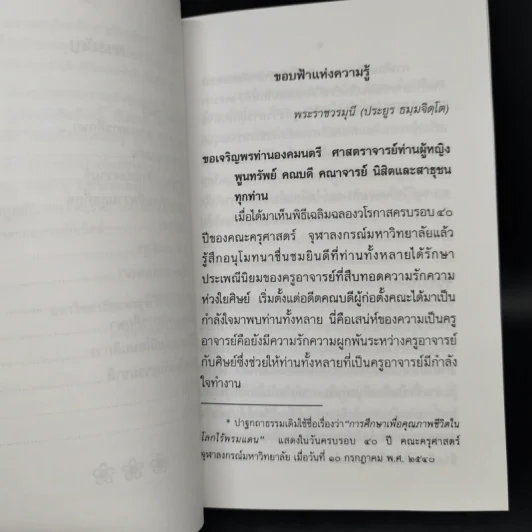 ขอบฟ้าแห่งความรู้
พระราชวรมุนี (ประยูร ธมฺมจิตฺโต)
ขอเจริญพรท่านองคมนตรี ศาสตราจารย์ท่านผู้หญิง
พูนทรัพย์ คณบดี คณาจารย์ นิสิตและสาธุชน
ทุกท่าน
เมื่อได้มาเห็นพิธีเฉลิมฉลองวโรกาสครบรอบ ๔๐
ปีของคณะครุศาสตร์ จุฬาลงกรณ์มหาวิทยาลัยแล้ว
รู้สึกอนุโมทนาชื่นชมยินดีที่ท่านทั้งหลายได้รักษา
ประเพณีนิยมของครูอาจารย์ที่สืบทอดความรักความ
ห่วงใยศิษย์ เริ่มตั้งแต่อดีตคณบดีผู้ก่อตั้งคณะได้มาเป็น
กำลังใจมาพบท่านทั้งหลาย นี่คือเสน่ห์ของความเป็นครู
อาจารย์คือยังมีความรักความผูกพันระหว่างครูอาจารย์
กับศิษย์ซึ่งช่วยให้ท่านทั้งหลายที่เป็นครูอาจารย์มีกำลัง
ใจทำงาน
* ปาฐกถาธรรมเดิมใช้ชื่อเรื่องว่า“การศึกษาเพื่อคุณภาพชีวิตใน
โลกไร้พรมแดน” แสดงในวันครบรอบ ๔๐ ปี คณะครุศาสตร์
จุฬาลงกรณ์มหาวิทยาลัย เมื่อวันที่ ๑๐ กรกฎาคม พ.ศ. ๒๕๔๐